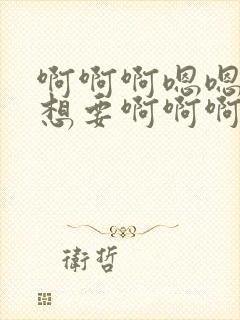 啊啊啊嗯嗯
想要啊啊啊
衛哲